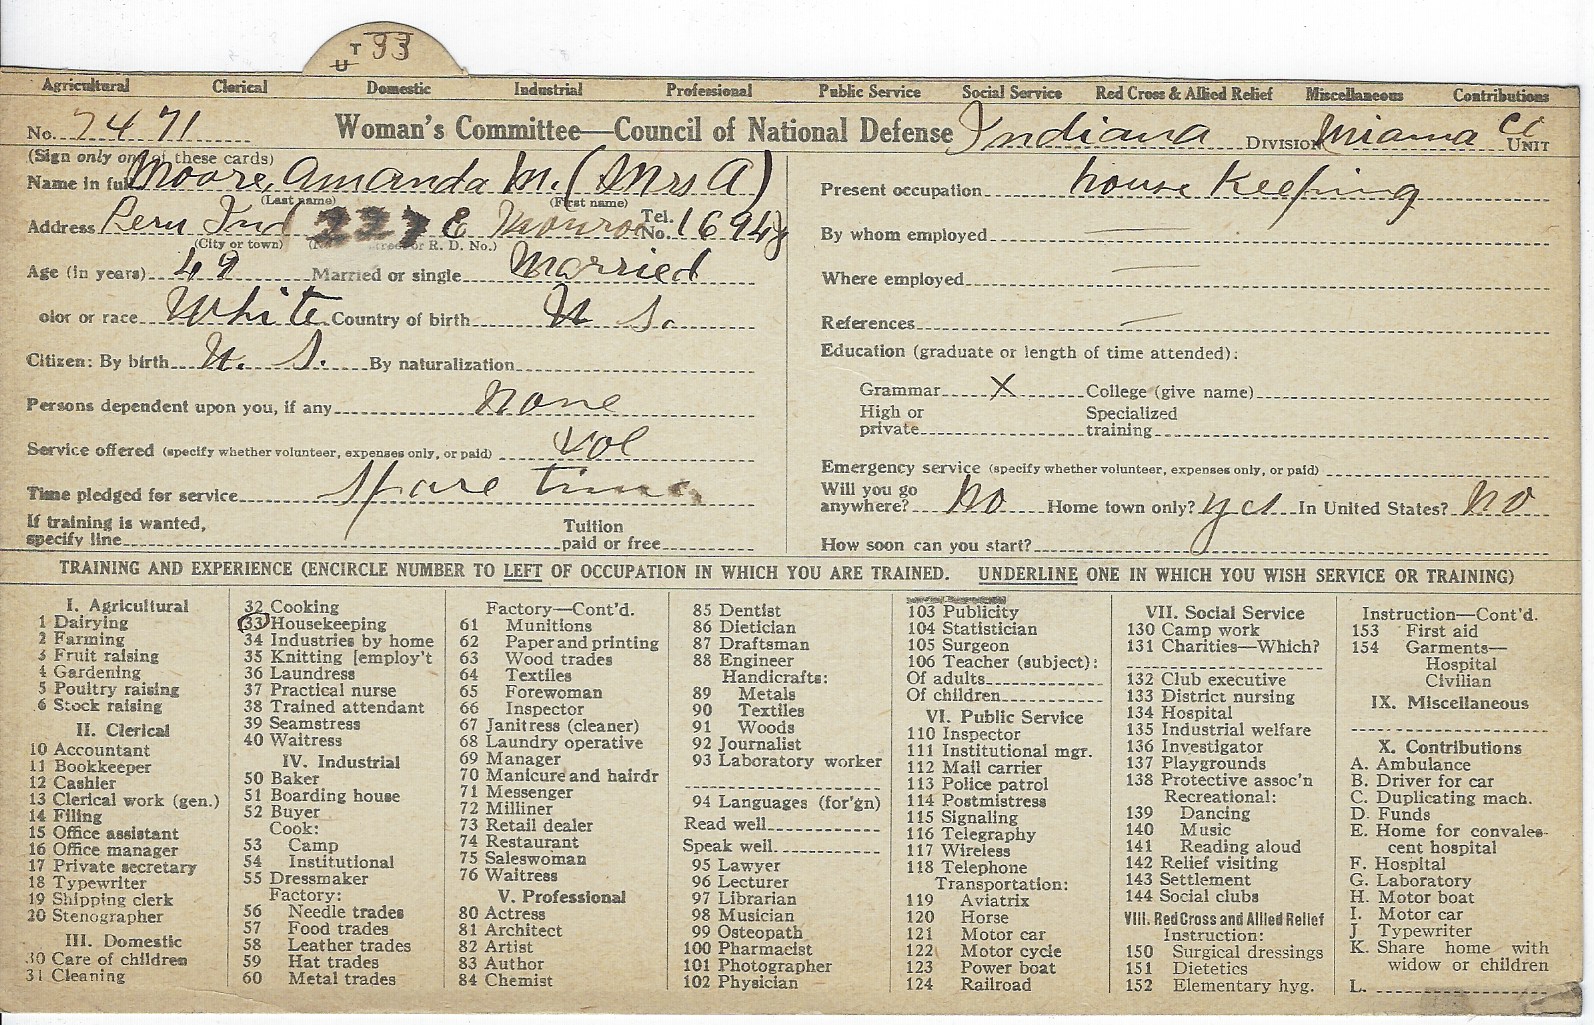 T 33
U
Agricultural Clerical Domestic Industrial Professional Public Service Social Service Red Cross & Allied Relief Miscellaneous Contributions
No. 7471 Woman's Committee—Council of National Defense Indiana DIVISION Miama Co UNIT
(Sign only one of these cards)
Name in full Moore, Amanda M. (Mrs A)
(Last name) (First name)
Address Peru Ind 227 E Monroe Tel. No. 1694
(City or town) (No. street or R. D. No.)
Age (in years) 49 Married or single Married
olor or race White Country of birth U S.
Citizen: By birth U. S. By naturalization
Persons dependent upon you, if any none
Service offered (specify whether volunteer, expenses only, or paid) vol
Time pledged for service spare time
If training is wanted, specify line Tuition paid or free
Present occupation house Keeping
By whom employed —
Where employed —
References —
Education (graduate or length of time attended):
Grammar X College (give name)
High or private Specialized training
Emergency service (specify whether volunteer, expenses only, or paid)
Will you go anywhere? No Home town only? yes In United States? No
How soon can you start?
TRAINING AND EXPERIENCE (ENCIRCLE NUMBER TO LEFT OF OCCUPATION IN WHICH YOU ARE TRAINED. UNDERLINE ONE IN WHICH YOU WISH SERVICE OR TRAINING)
I. Agricultural
1 Dairying
2 Farming
3 Fruit raising
4 Gardening
5 Poultry raising
6 Stock raising
II. Clerical
10 Accountant
11 Bookkeeper
12 Cashier
13 Clerical work (gen.)
14 Filing
15 Office assistant
16 Office manager
17 Private secretary
18 Typewriter
19 Shipping clerk
20 Stenographer
III. Domestic
30 Care of children
31 Cleaning
32 Cooking
33 Housekeeping
34 Industries by home
35 Knitting [employ't
36 Laundress
37 Practical nurse
38 Trained attendant
39 Seamstress
40 Waitress
IV. Industrial
50 Baker
51 Boarding house
52 Buyer
Cook:
53 Camp
54 Institutional
55 Dressmaker
Factory:
56 Needle trades
57 Food trades
58 Leather trades
59 Hat trades
60 Metal trades
Factory—Cont'd.
61 Munitions
62 Paper and printing
63 Wood trades
64 Textiles
65 Forewoman
66 Inspector
67 Janitress (cleaner)
68 Laundry operative
69 Manager
70 Manicure and hairdr
71 Messenger
72 Milliner
73 Retail dealer
74 Restaurant
75 Saleswoman
76 Waitress
V. Professional
80 Actress
81 Architect
82 Artist
83 Author
84 Chemist
85 Dentist
86 Dietician
87 Draftsman
88 Engineer
Handicrafts:
89 Metals
90 Textiles
91 Woods
92 Journalist
93 Laboratory worker
94 Languages (for'gn)
Read well
Speak well
95 Lawyer
96 Lecturer
97 Librarian
98 Musician
99 Osteopath
100 Pharmacist
101 Photographer
102 Physician
103 Publicity
104 Statistician
105 Surgeon
106 Teacher (subject):
Of adults
Of children
VI. Public Service
110 Inspector
111 Institutional mgr.
112 Mail carrier
113 Police patrol
114 Postmistress
115 Signaling
116 Telegraphy
117 Wireless
118 Telephone
Transportation:
119 Aviatrix
120 Horse
121 Motor car
122 Motor cycle
123 Power boat
124 Railroad
VII. Social Service
130 Camp work
131 Charities—Which?
132 Club executive
133 District nursing
134 Hospital
135 Industrial welfare
136 Investigator
137 Playgrounds
138 Protective assoc'n
Recreational:
139 Dancing
140 Music
141 Reading aloud
142 Relief visiting
143 Settlement
144 Social clubs
VIII. Red Cross and Allied Relief
Instruction:
150 Surgical dressings
151 Dietetics
152 Elementary hyg.
Instruction—Cont'd.
153 First aid
154 Garments—
Hospital
Civilian
IX. Miscellaneous
X. Contributions
A. Ambulance
B. Driver for car
C. Duplicating mach.
D. Funds
E. Home for convales-
cent hospital
F. Hospital
G. Laboratory
H. Motor boat
I. Motor car
J Typewriter
K. Share home with
widow or children
L.